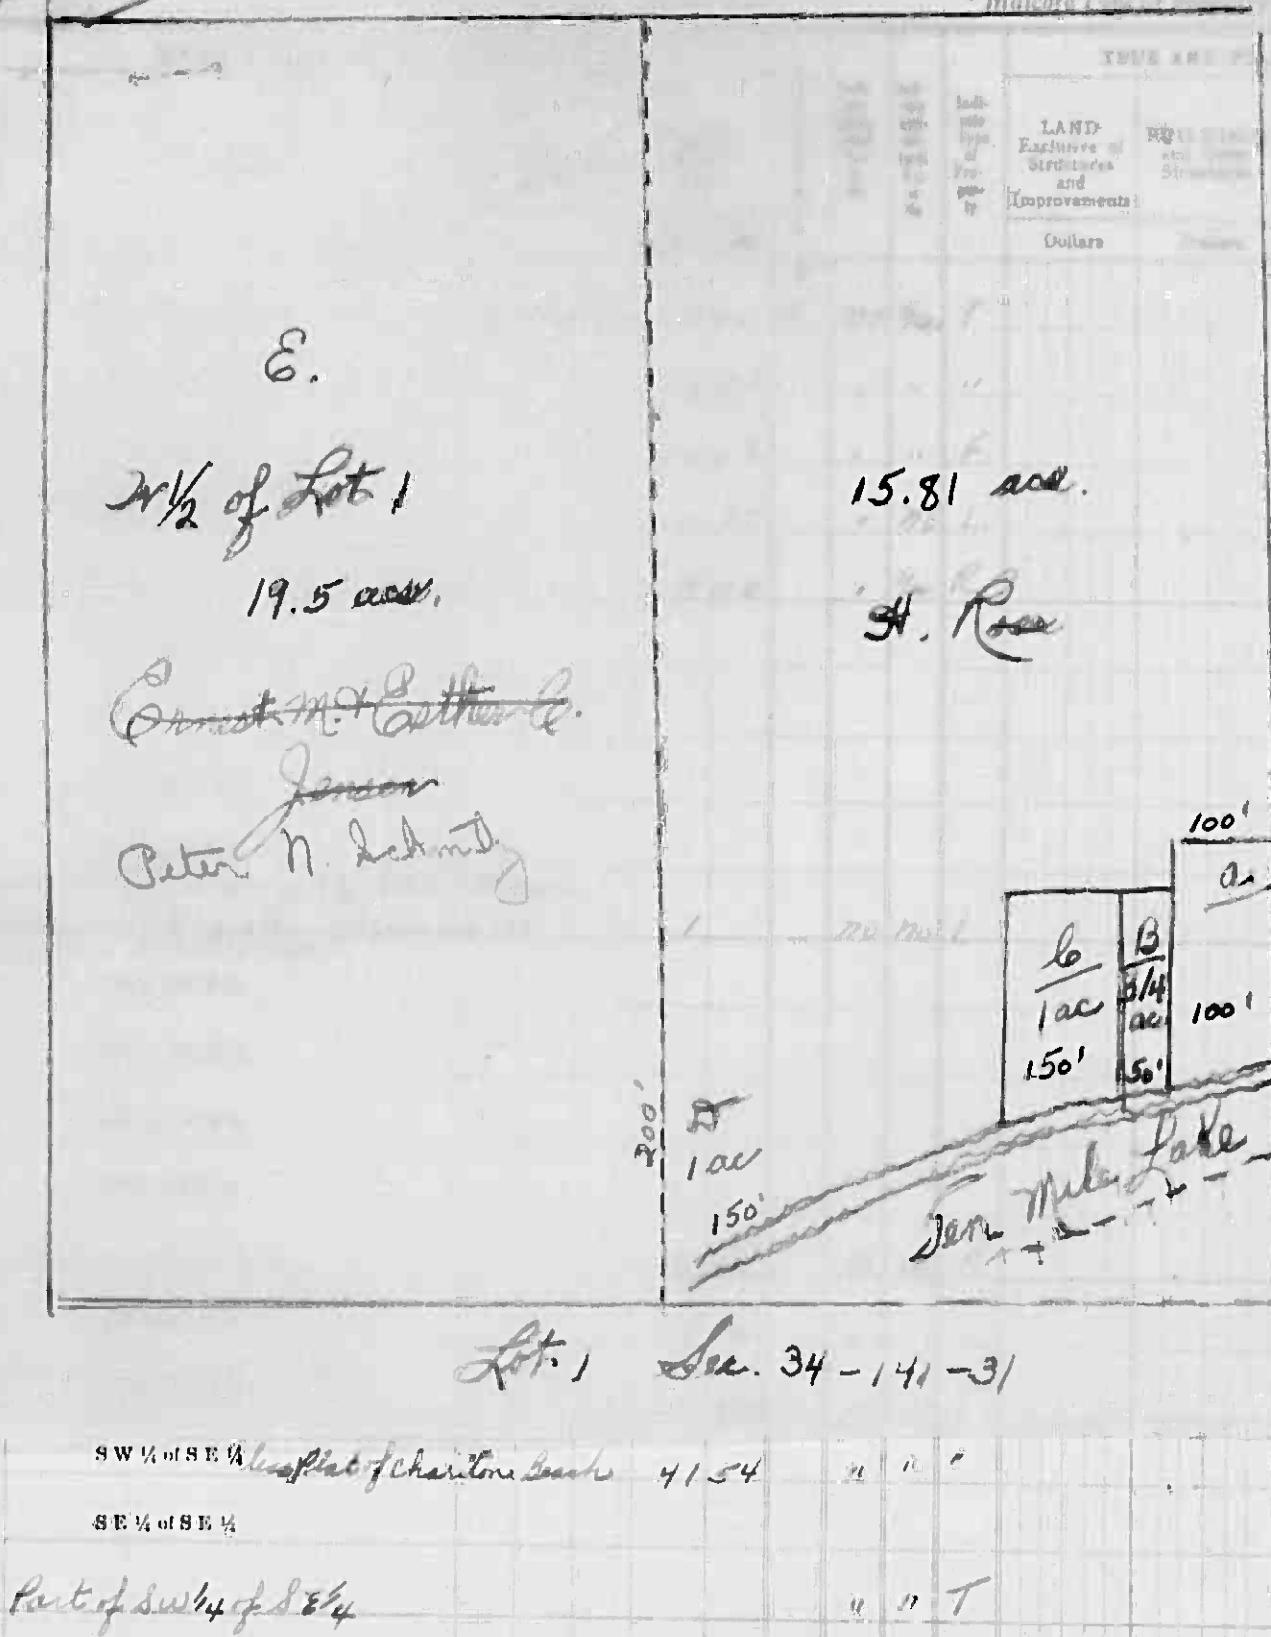 TRUE AND
LAND
Exclusive of
Structures
and
Improvements
Dollars
E.
W 1/2 of Lot 1
19.5 acs.
Ernest M. & Esther C.
Jensen
Peter N. Schmitz
15.81 acs.
H. Rose
100'
a.
C
1 ac
150'
B
3/4
ac
50'
100'
200'
D
1 ac
150'
Ten Mile Lake
Lot 1 Sec. 34-141-31
S W ¼ of S E ¼ less Plat of Beach 41 54 " " "
S E ¼ of S E ¼
Part of SW 1/4 of SE 1/4 " " T